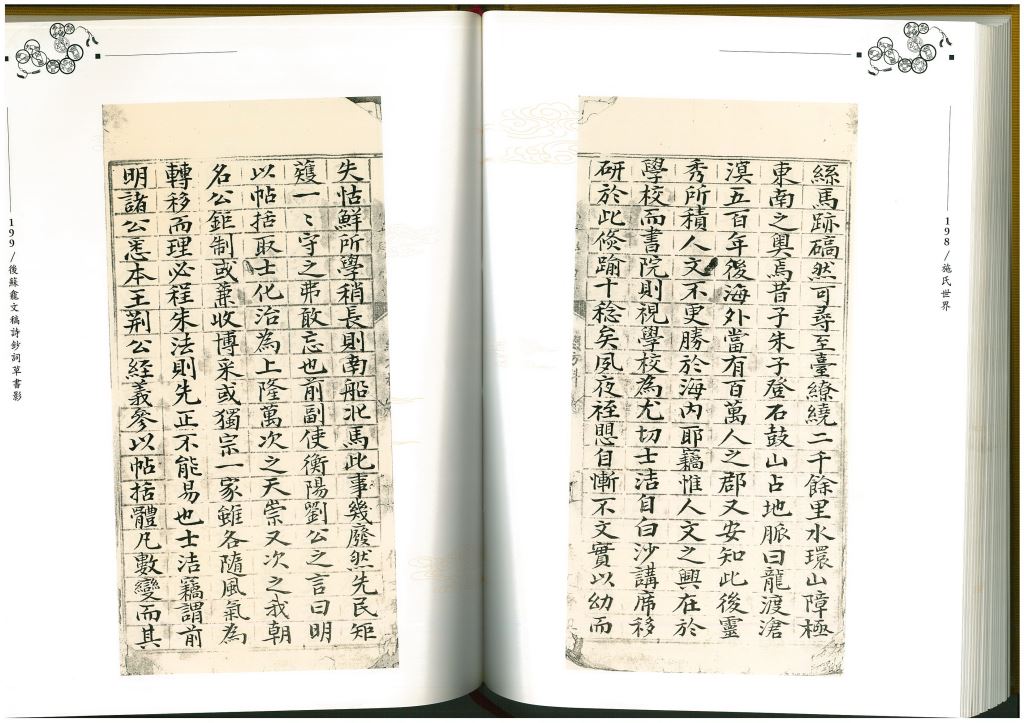 198/施氏世界
絲馬跡碻然可尋至臺繚繞二千餘里水環山障極
東南之奧焉昔子朱子登石鼓山占地脈曰龍渡滄
溟五百年後海外當有百萬人之郡又安知此後靈
秀所積人文不更勝於海內耶竊惟人文之興在於
學校而書院則視學校為尤切士洁自白沙講席移
研於此倐踰十稔矣夙夜祗愳自慚不文實以幼而
失怙鮮所學稍長則南船北馬此事幾廢然先民矩
矱一〻守之弗敢忘也前副使衡陽劉公之言曰明
以帖括取士化治為上隆萬次之天崇又次之我朝
名公鉅制或兼收博采或獨宗一家雖各隨風氣為
轉移而理必程朱法則先正不能易也士洁竊謂前
明諸公悉本王荊公經義參以帖括體凡數變而其
199/後蘇龕文稿詩鈔詞草書影